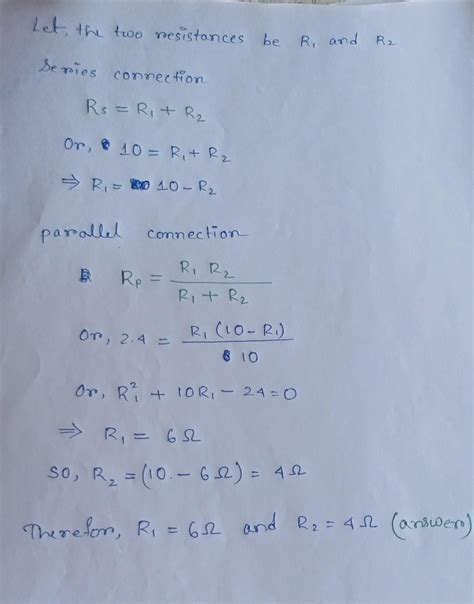 Let, the two resistances be R₁ and R₂
Series connection
Rs = R₁ + R₂
Or, 10 = R₁ + R₂
⇒ R₁ = 10 - R₂
parallel connection
Rp = R₁ R₂ / R₁ + R₂
Or, 2.4 = R₁ (10 - R₁) / 10
Or, R₁² + 10R₁ - 24 = 0
⇒ R₁ = 6Ω
So, R₂ = (10 - 6Ω) = 4Ω
Therefor, R₁ = 6Ω and R₂ = 4Ω (answer)